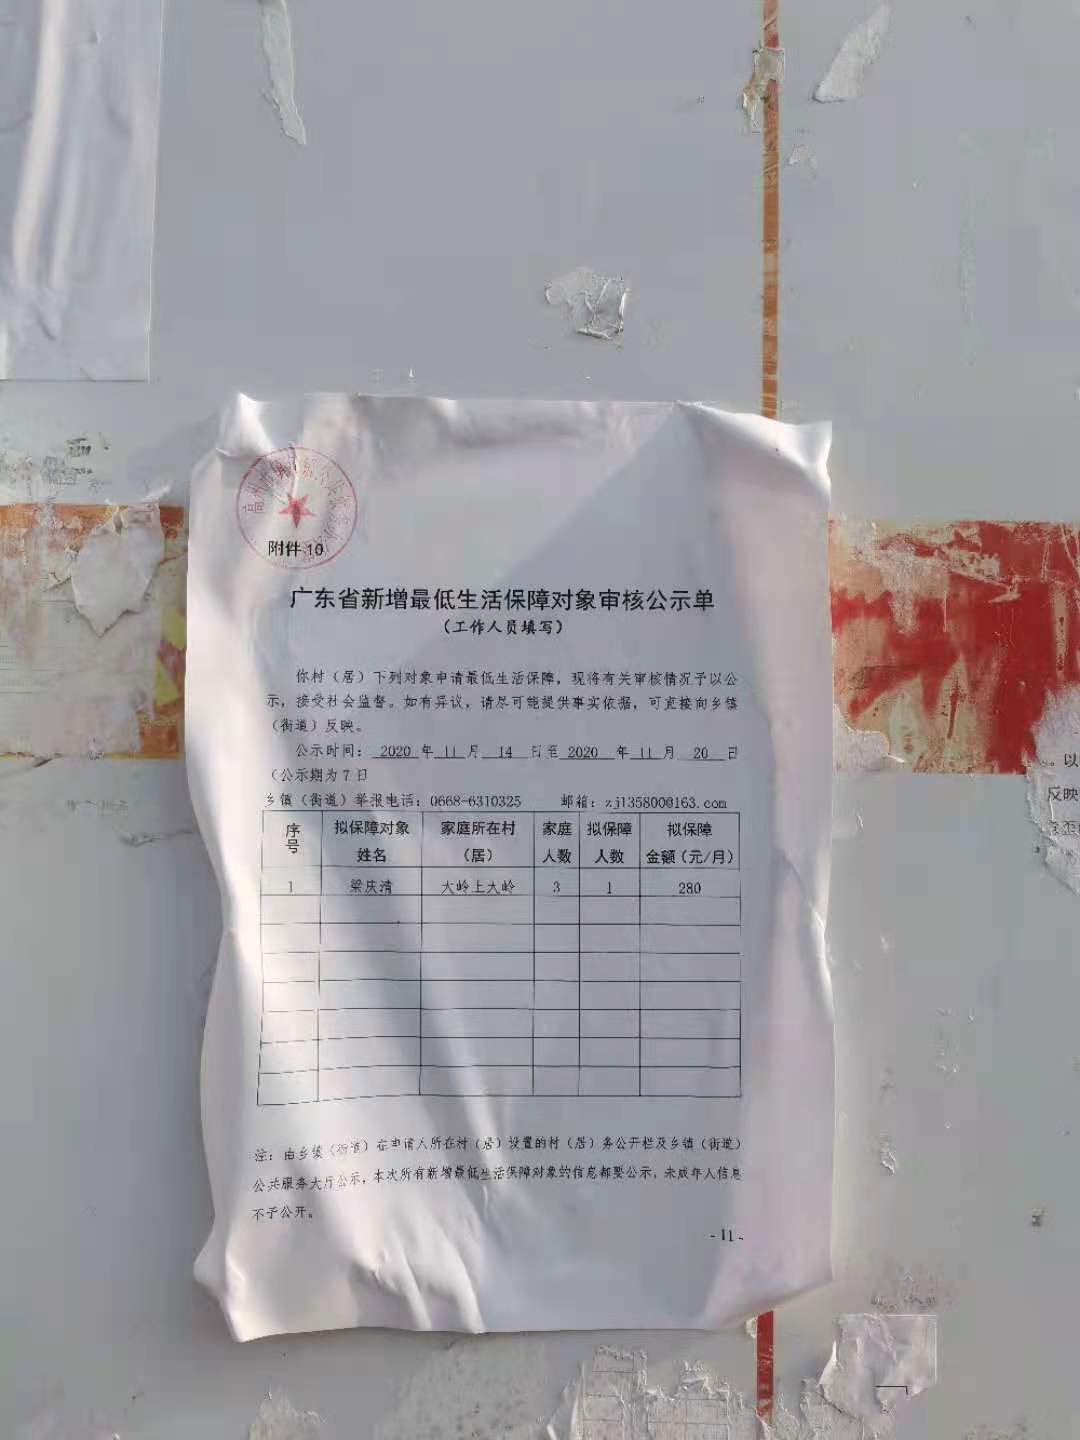 附件 10
广东省新增最低生活保障对象审核公示单
（工作人员填写）
你村（居）下列对象申请最低生活保障，现将有关审核情况予以公
示，接受社会监督。如有异议，请尽可能提供事实依据，可直接向乡镇
（街道）反映。
公示时间： 2020 年 11 月 14 日至 2020 年 11 月 20 日
（公示期为 7 日
乡镇（街道）举报电话：0668-6310325 邮箱：zj13580@163.com
序号 拟保障对象姓名 家庭所在村（居） 家庭人数 拟保障人数 拟保障金额（元/月）
1 梁庆清 大岭上大岭 3 1 280
注：由乡镇（街道）在申请人所在村（居）设置的村（居）务公开栏及乡镇（街道）
公共服务大厅公示，本次所有新增最低生活保障对象的信息都要公示，未成年人信息
不予公开。
- 11 -
。以
反映